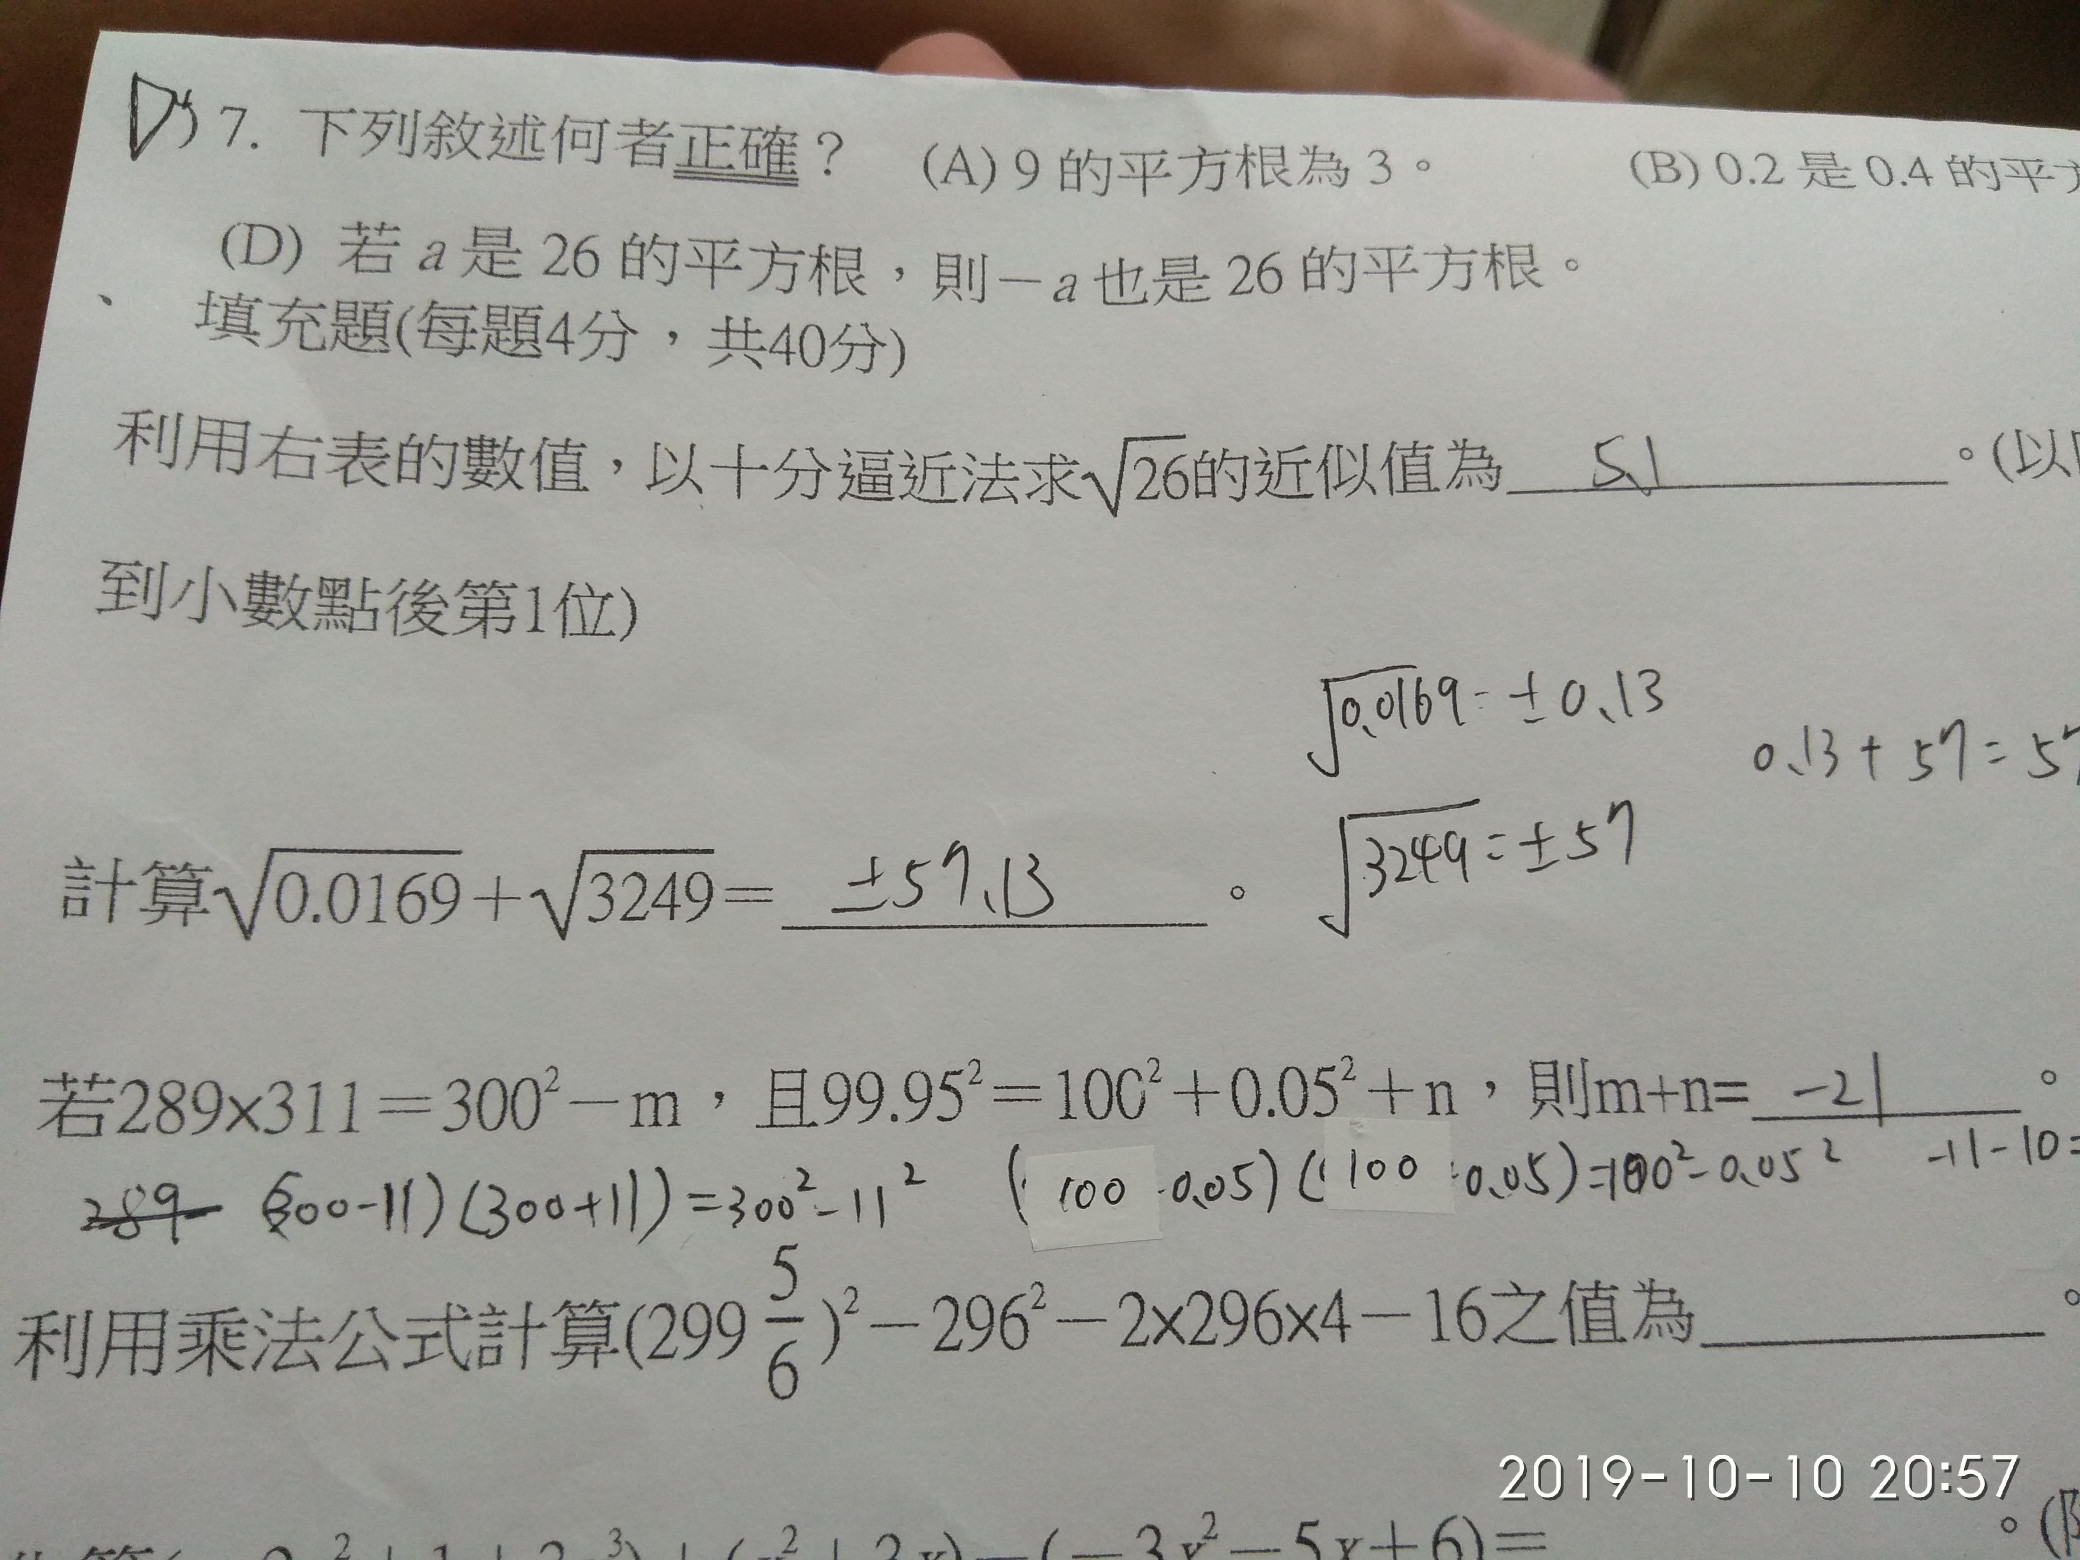 D 7. 下列敘述何者正確？ (A) 9 的平方根為 3。 (B) 0.2 是 0.4 的平方
(D) 若 a 是 26 的平方根，則－a 也是 26 的平方根。
、 填充題(每題4分，共40分)
利用右表的數值，以十分逼近法求√26的近似值為 5.1 。(以
到小數點後第1位)
√0.0169 = ±0.13
0.13 + 57 = 57
√3249 = ±57
計算√0.0169＋√3249＝ ±57.13 。
若289×311＝300²－m，且99.95²＝100²＋0.05²＋n，則m+n= -21 。
289 (300-11)(300+11)=300²-11² (100-0.05)(100-0.05)=100²-0.05² -11-10=
利用乘法公式計算(299 5/6)²－296²－2×296×4－16之值為 。
2019-10-10 20:57
(－3x²－5x＋6)＝ 。(